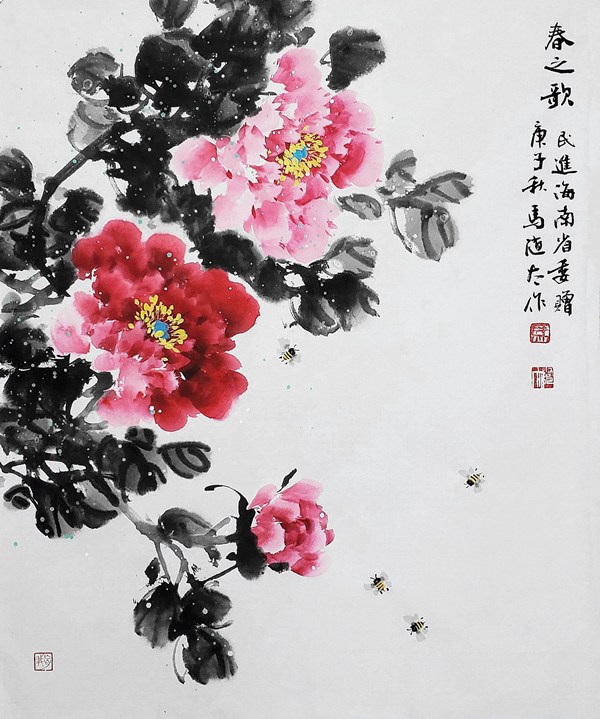 春之歌
民進海南省委贈
庚子秋馬隨太作